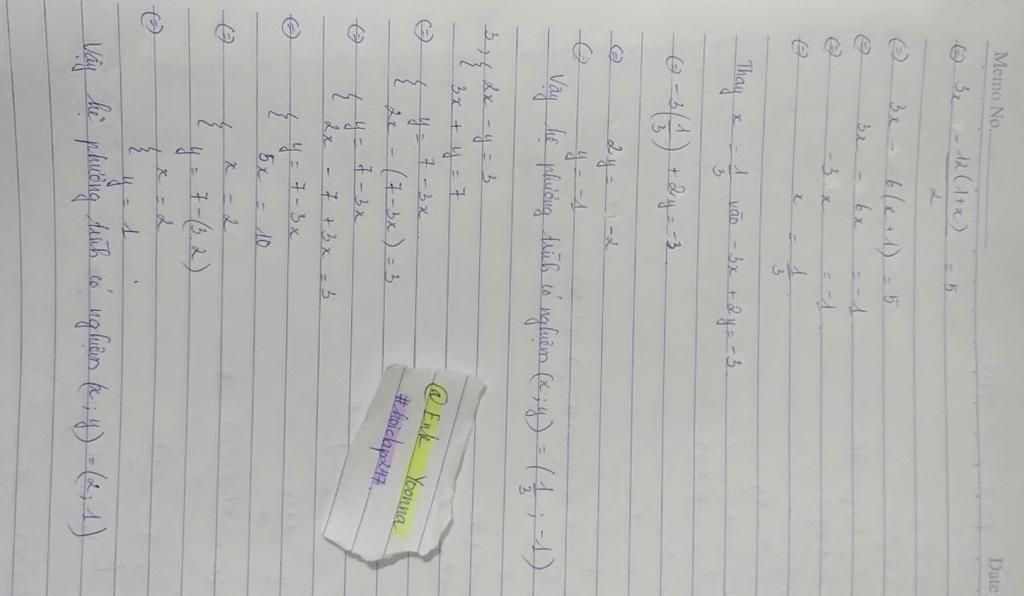 Memo No. Date
(=) 3x - 12(1+x)/2 = 5
(=) 3x - 6(x+1) = 5
(=) 3x - 6x = -1
(=) -3x = -1
(=) x = 1/3
Thay x = 1/3 vào -3x + 2y = -3
(=) -3(1/3) + 2y = -3
(=) 2y = -2
(=) y = -1
Vậy hệ phương trình có nghiệm (x; y) = (1/3; -1)
3, { 2x - y = 3
3x + y = 7
(=) { y = 7 - 3x
2x - (7 - 3x) = 3
(=) { y = 7 - 3x
2x - 7 + 3x = 3
(=) { y = 7 - 3x
5x = 10
(=) { x = 2
y = 7 - (3.2)
(=) { x = 2
y = 1
Vậy hệ phương trình có nghiệm (x; y) = (2; 1)
@Enk Yoonna
#hoidap247